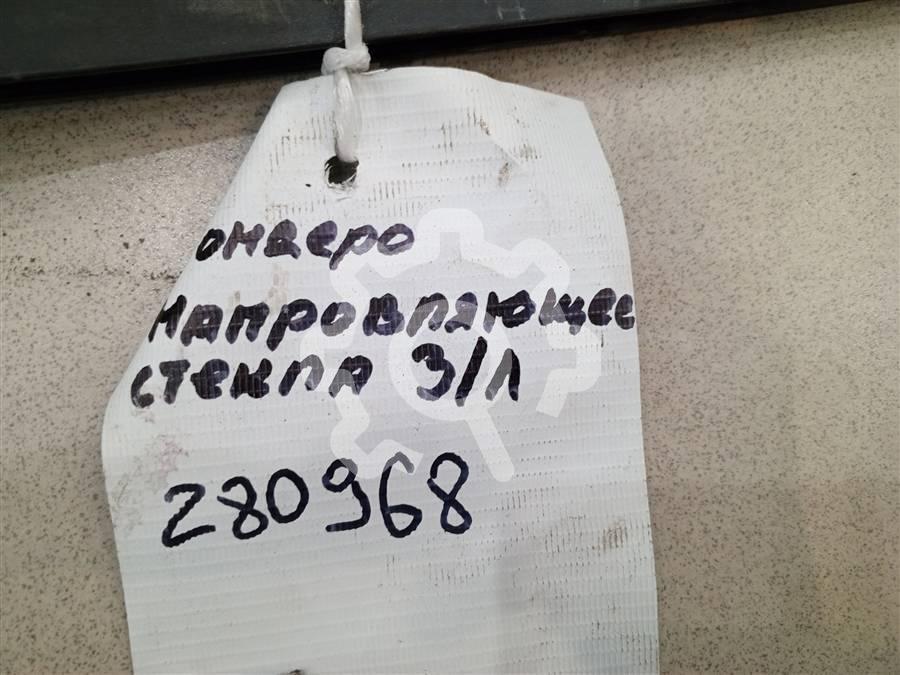 ондеро
напровляющее
стекла З/Л
280968